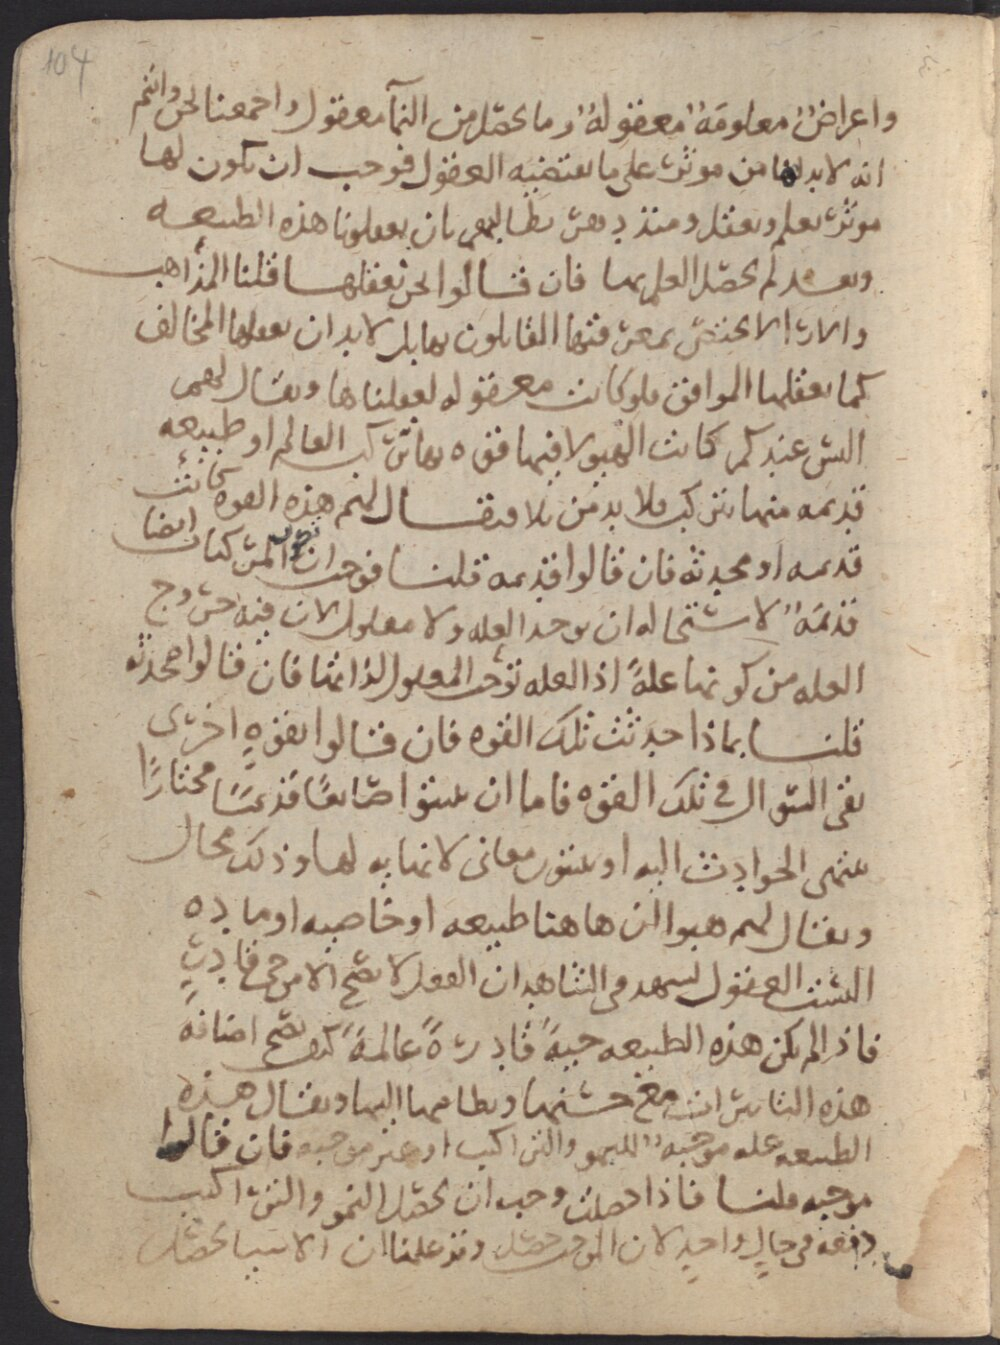 104
واعراضٌ معلومَةٌ معقولةٌ وما يحصل من النمآ معقول واجمعنا نحن وانتم
انه لا بد لها من موثر على ما تقتضيه العقول فوجب ان يكون لها
موثر يعلم ويعقل ومنذ دهر نطالبهم بان يعقلونا هذه الطبيعه
وبعد لم يحصل العلم بها فان قالوا نحن نعقلها قلنا المذاهب
والارا لا يختص بمعرفتها القايلون بها بل لا بد ان يعقلها المخالف
كما يعقلها الموافق فلو كانت معقوله لعقلناها ويقال لهم
اليس عندكم كانت الهيولا فيها قوه بها تركب العالم او طبيعه
قديمه منها تركب فلا بد من بلا فيقال لهم هذه القوه كانت
قديمه او محدثه فان قالوا قديمه قلنا فوجب ان تكون المركبات ايضا
قديمَةً لاستحاله ان يوجد العله ولا معلول لان فيه خروج
العله من كونها علةً اذ العله توجب المعلول لذاتها فان قالوا محدثه
قلنا بماذا حدثت تلك القوه فان قالوا بقوهٍ اخرى
بقى السوال في تلك القوه فاما ان يثبتوا صانعًا قديمًا مختارًا
ينتهى الحوادث اليه او يثبتون معانى لا نهايه لها وذلك محال
ويقال لهم هبوا ان هاهنا طبيعه او خاصيه او ماده
اليست العقول تشهد في الشاهد ان الفعل لا يصح الا من حي قادرٍ
فاذا لم يكن هذه الطبيعه حيةً قادرةً عالمةً كيف يصح اضافه
هذه التاثيرات مع حسنها ونظامها اليها ويقال هذه
الطبيعه عله موجبةٌ للنمو والتراكيب او غير موجبه فان قالوا
موجبه قلنا فاذا حصلت وجب ان يحصل النمو والتراكيب
دفعه في حالٍ واحدٍ لان الموجب حصل وقد علمنا ان الاشيا يحصل